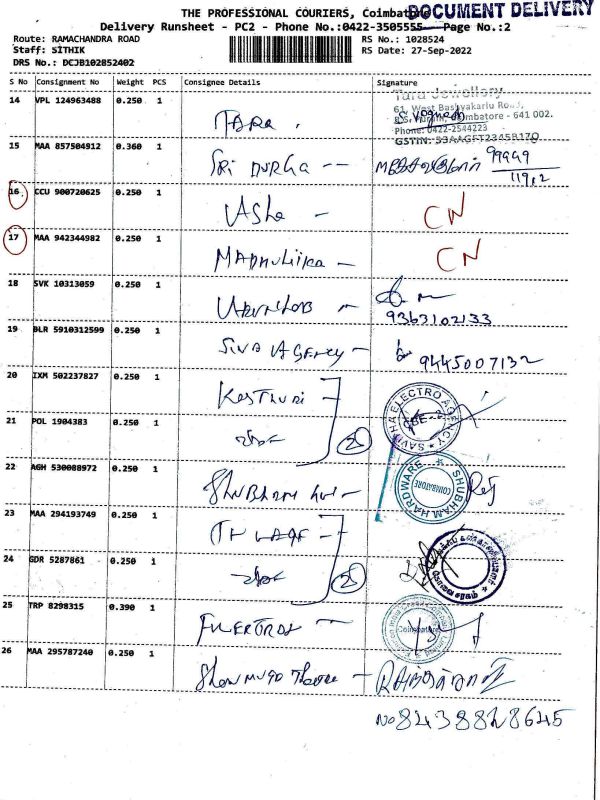 THE PROFESSIONAL COURIERS, Coimbatore
DOCUMENT DELIVERY
Delivery Runsheet - PC2 - Phone No.:0422-3505555 Page No.:2
Route: RAMACHANDRA ROAD
RS No.: 1028524
Staff: SITHIK
RS Date: 27-Sep-2022
DRS No.: DCJB102852402
S No Consignment No Weight PCS Consignee Details Signature
14 VPL 124963488 0.250 1 Tara
Tara Jewellery
61, West Bashyakarlu Road,
R.S. Puram, Coimbatore - 641 002.
Phone: 0422-2544223
GSTIN: 33AAGFT2345B1ZO
15 MAA 857504912 0.360 1 SRI DURGA
99449
119,2
16 CCU 900720625 0.250 1 USha CN
17 MAA 942344982 0.250 1 MADHULIIKA CN
18 SVK 10313059 0.250 1
9363102133
19 BLR 5910312599 0.250 1 SIVA AGENCY
9445007132
20 IXM 502237827 0.250 1 KASTHURI
SAVITHA ELECTRO AGENCY
CBE-2
21 POL 1904383 0.250 1
2
22 AGH 530088972 0.250 1 SHUBHAM
SHUBHAM HARDWARE
COIMBATORE
23 MAA 294193749 0.250 1
24 GDR 5287861 0.250 1
2
கோவை சரகம்
25 TRP 8298315 0.390 1
Coimbatore
26 MAA 295787240 0.250 1
No 8438828645